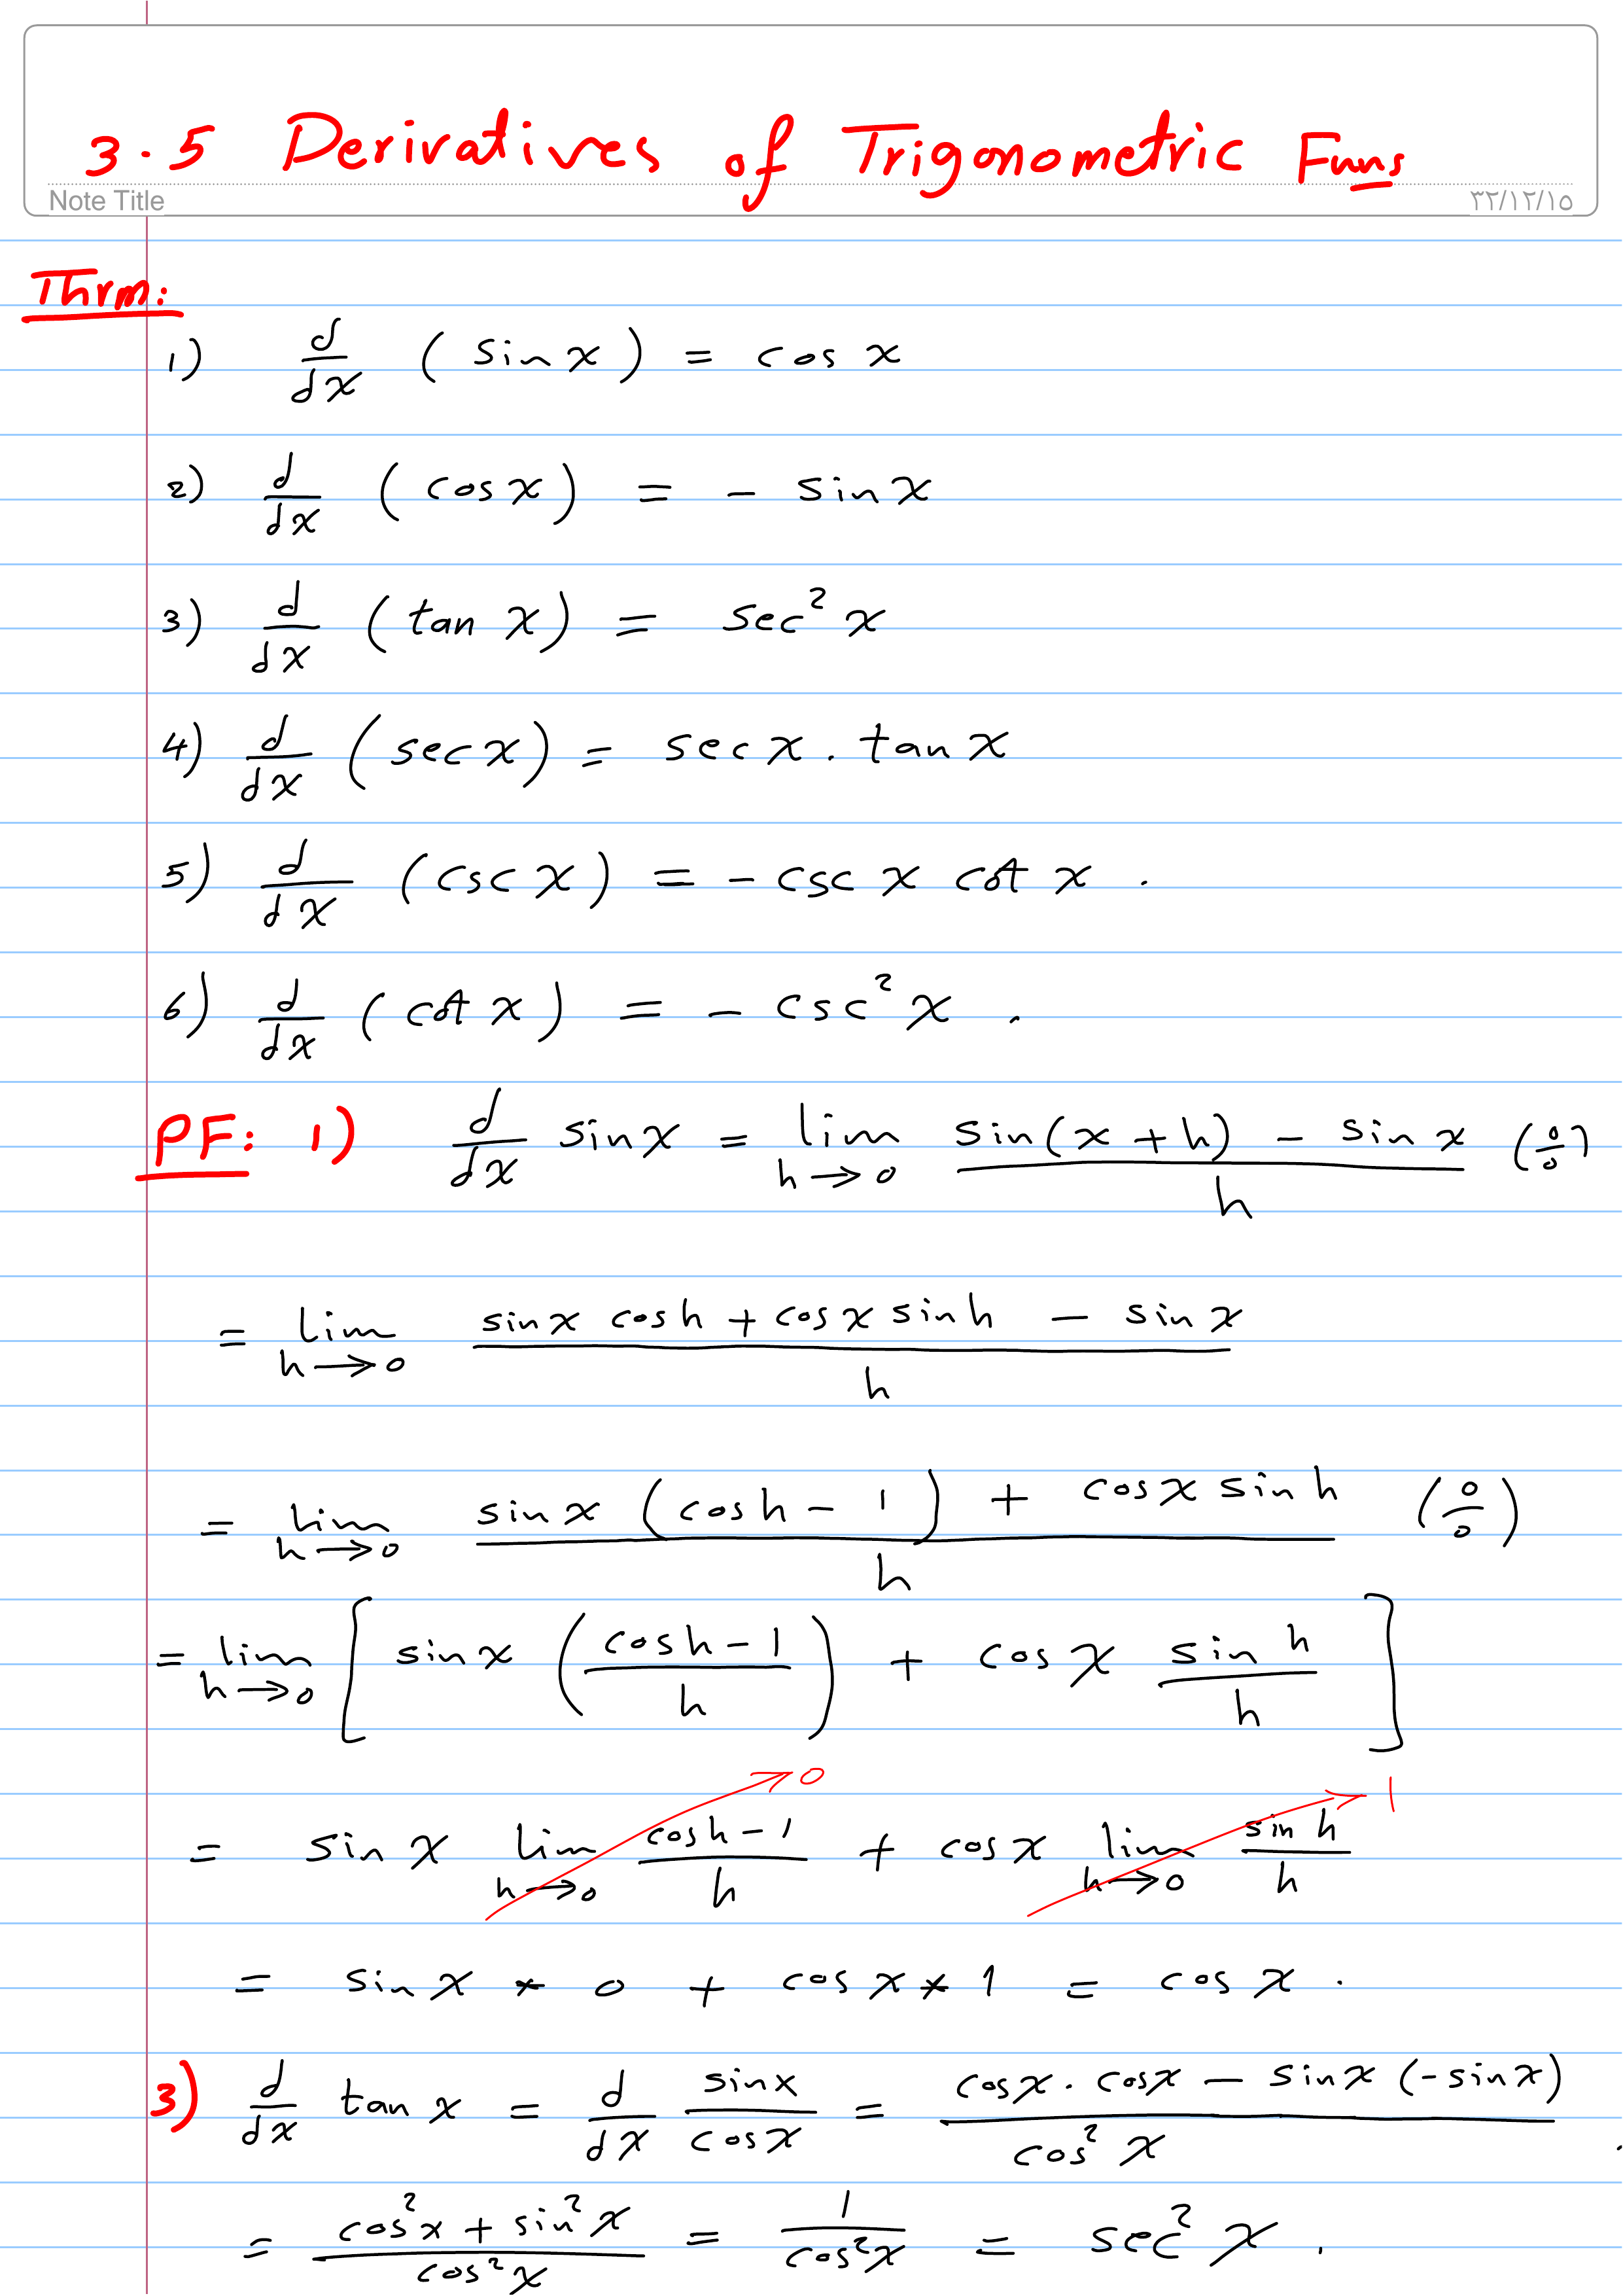 3.5 Derivatives of Trigonometric Funs
Note Title
٣٢/١٢/١٥
Thrm:
1) d/dx (sin x) = cos x
2) d/dx (cos x) = - sin x
3) d/dx (tan x) = sec² x
4) d/dx (sec x) = sec x . tan x
5) d/dx (csc x) = - csc x cot x .
6) d/dx (cot x) = - csc² x .
PF: 1) d/dx sin x = lim h→0 (sin(x+h) - sin x)/h (0/0)
= lim h→0 (sin x cos h + cos x sin h - sin x)/h
= lim h→0 (sin x (cos h - 1) + cos x sin h)/h (0/0)
= lim h→0 [ sin x ((cos h - 1)/h) + cos x (sin h)/h ]
= sin x lim h→0 (cos h - 1)/h →0 + cos x lim h→0 (sin h)/h →1
= sin x * 0 + cos x * 1 = cos x .
3) d/dx tan x = d/dx (sin x)/(cos x) = (cos x . cos x - sin x (- sin x))/(cos² x) .
= (cos² x + sin² x)/(cos² x) = 1/(cos² x) = sec² x .